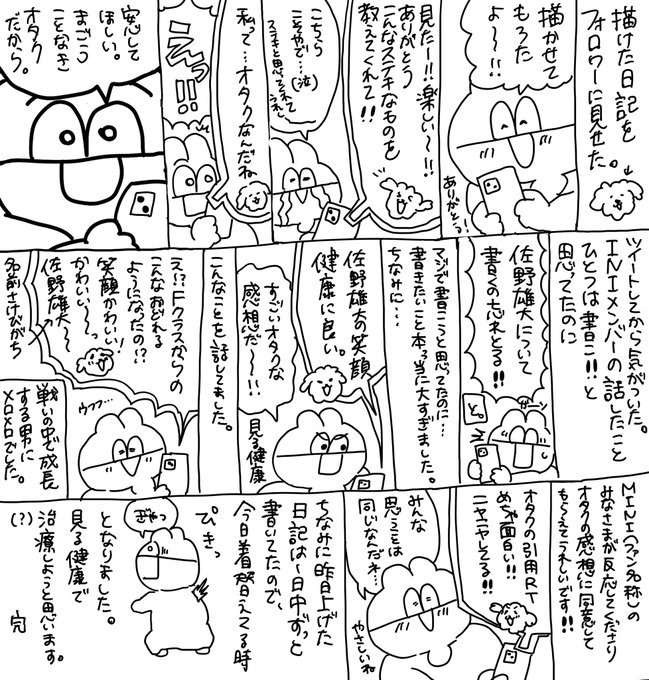 描けた日記を
フォロワーに見せた。
描かせて
もろた
よ〜!!
ありがとう!
見たー!!楽しい〜!!
ありがとう
こんなステキなものを
教えてくれて!!
こちら
こそやで…(泣)
ステキと思ってくれて
うれしい
私って…オタクなんだね
えっ!!
安心して
ほしい。
まごう
ことなき
オタク
だから。
ツイートしてから気がついた。
INIメンバーの話したこと
ひとつは書こ!!と
思ってたのに
佐野雄大について
書くの忘れとる!!
ガーン
と。
マジで書こうと思ってたのに…
書きたいこと本当に大すぎました。
ちなみに…
佐野雄大の笑顔
健康に良い。
すごいオタクな
感想だ〜!!
見る健康
こんなことを話してました。
え?Fクラスからの
こんなおどれる
ようになったの!?
笑顔かわいい!
かわいい〜っ
佐野雄大〜
名前さけびがち
ウフフ…
戦いの中で成長
する男に
メロメロでした。
MINI(ファン名称)の
みなさまが反応してくださり
オタクの感想に同意して
もらえてうれしいです!!
オタクの引用RT
めっちゃ面白い!!
ニヤニヤしてる!!
みんな
思うことは
同じなんだね…
やさしいね
ちなみに昨日上げた
日記は1日中ずっと
書いてたので、
今日着替えてる時
ぴきっ
ぎゃっ
となりました。
見る健康で
治療しようと思います。
(?)
完